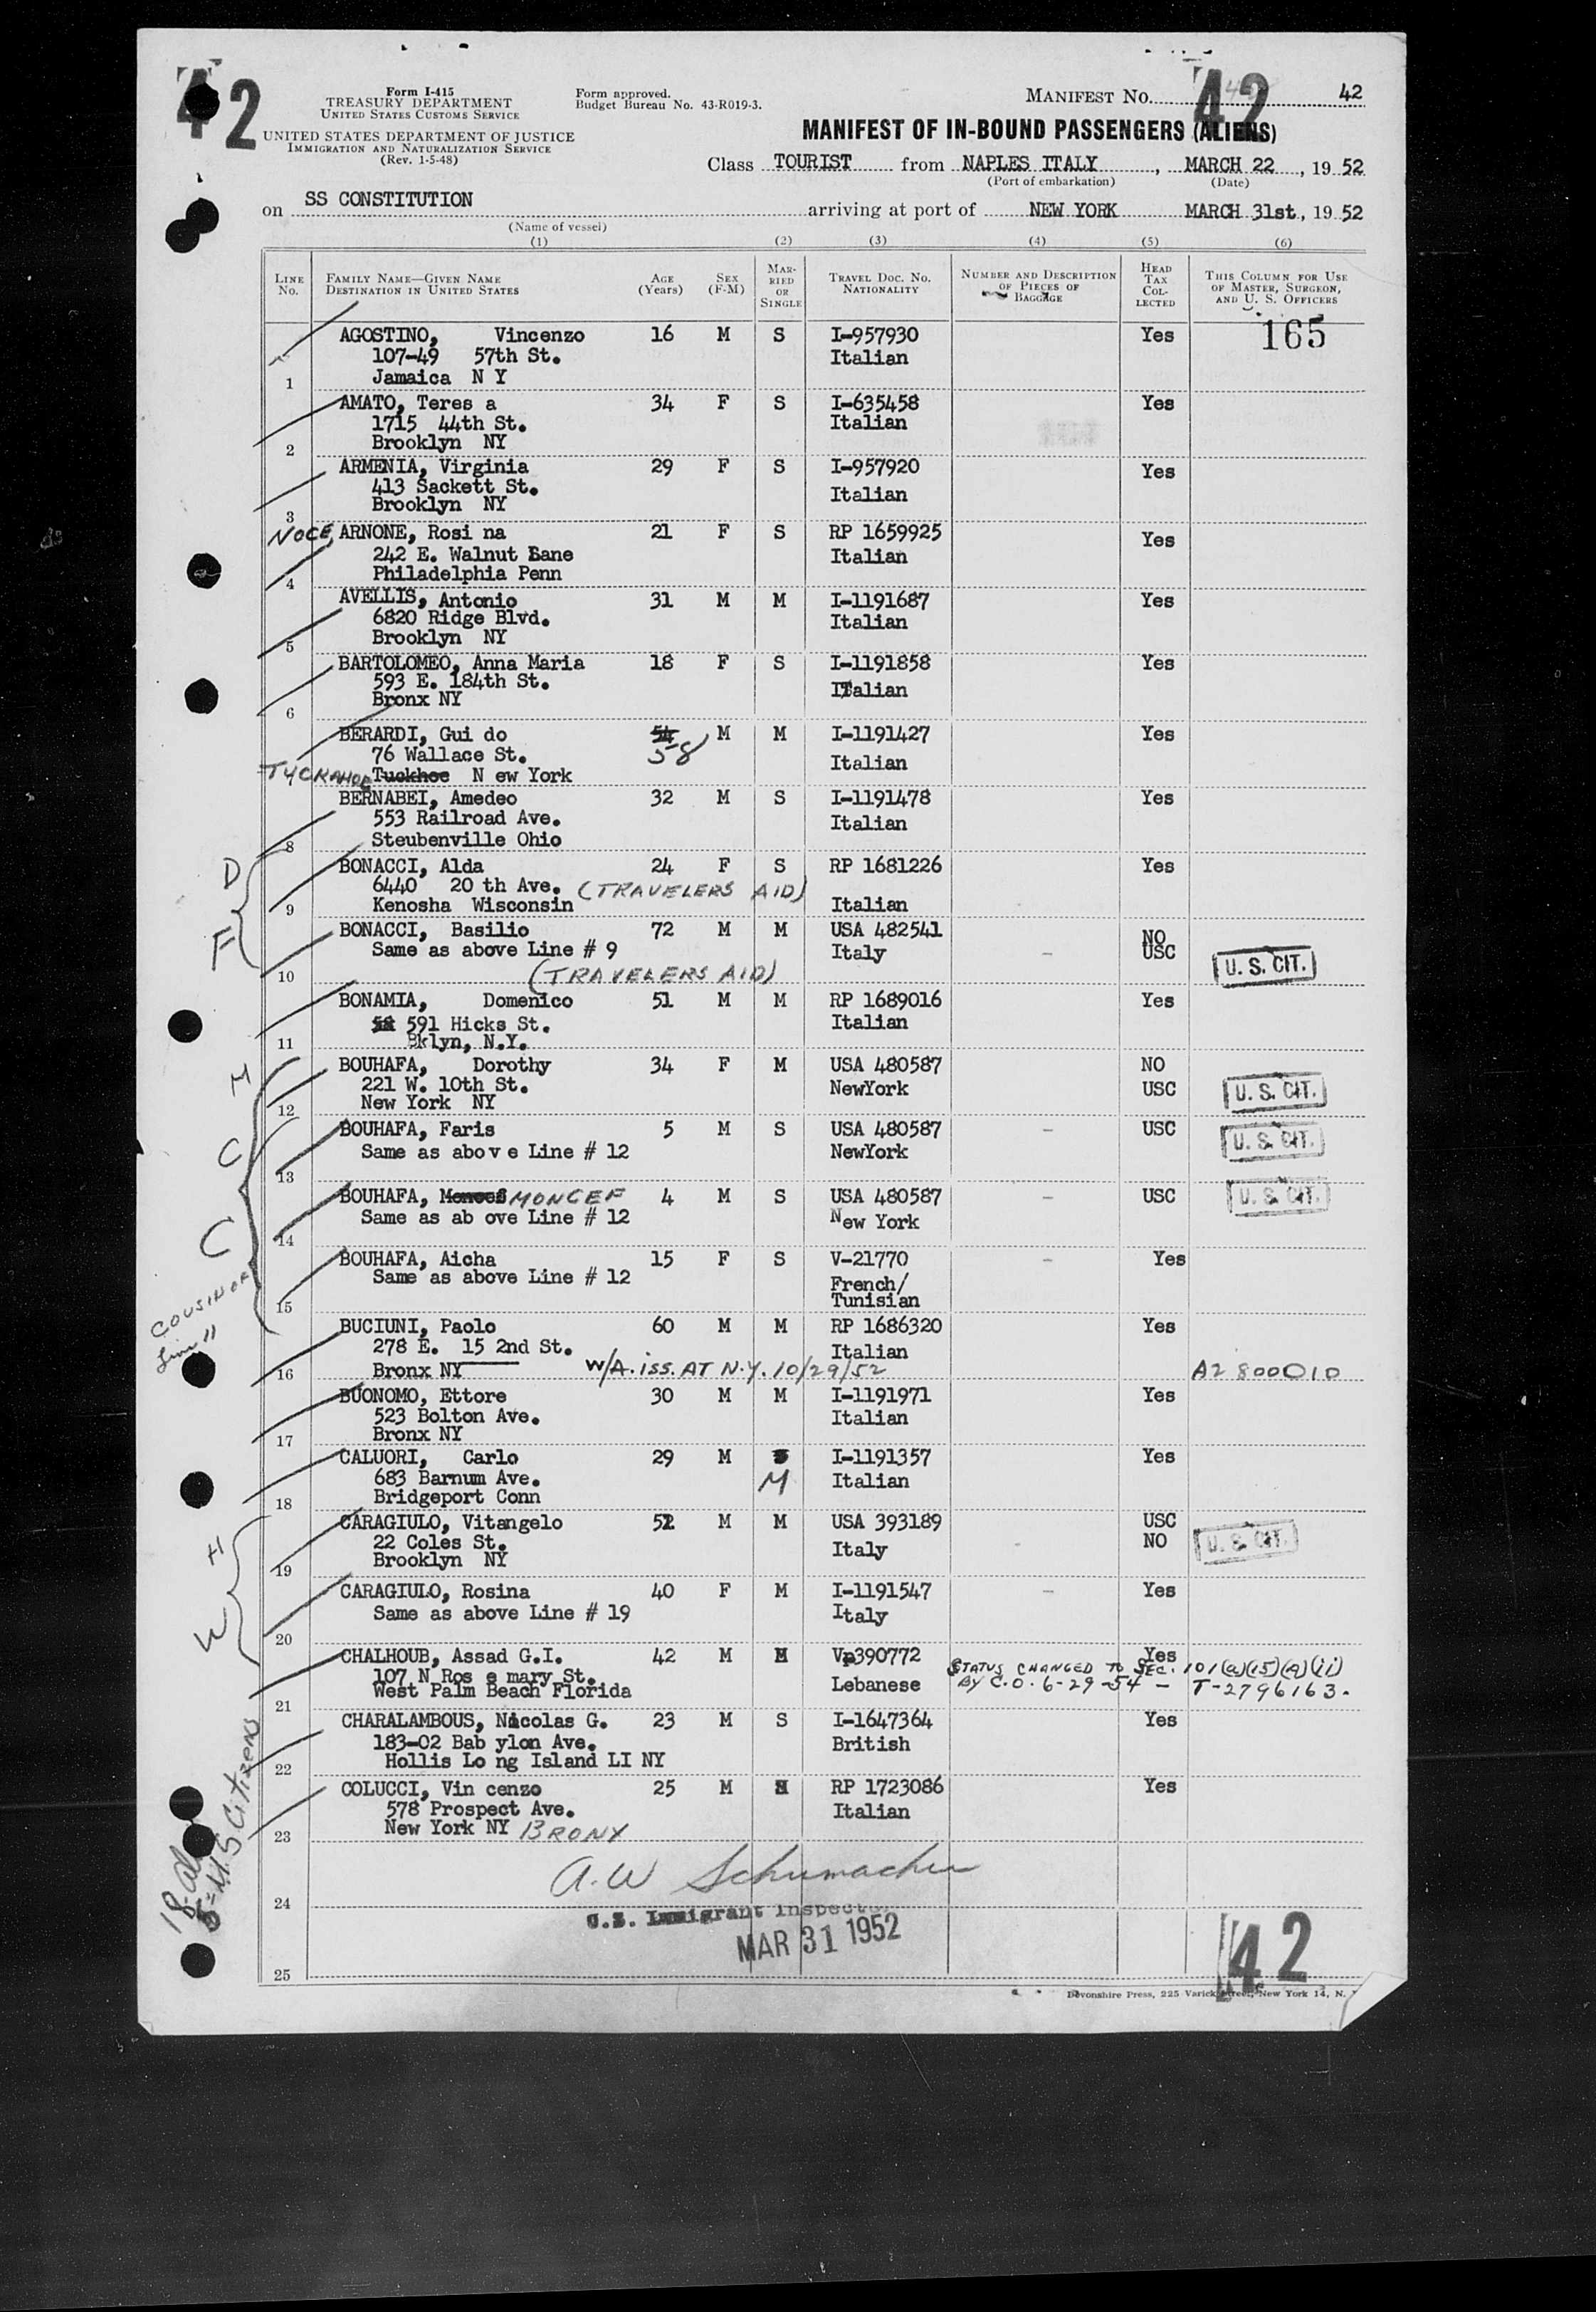 42
Form I-415
TREASURY DEPARTMENT
UNITED STATES CUSTOMS SERVICE
UNITED STATES DEPARTMENT OF JUSTICE
IMMIGRATION AND NATURALIZATION SERVICE
(Rev. 1-5-48)
Form approved.
Budget Bureau No. 43-R019-3.
MANIFEST NO. 42 42
MANIFEST OF IN-BOUND PASSENGERS (ALIENS)
Class TOURIST from NAPLES ITALY, MARCH 22, 1952
(Port of embarkation) (Date)
on SS CONSTITUTION arriving at port of NEW YORK MARCH 31st, 1952
(Name of vessel)
(1) (2) (3) (4) (5) (6)
LINE NO.
FAMILY NAME—GIVEN NAME
DESTINATION IN UNITED STATES
AGE (Years)
SEX (F-M)
MARRIED OR SINGLE
TRAVEL DOC. NO. NATIONALITY
NUMBER AND DESCRIPTION OF PIECES OF BAGGAGE
HEAD TAX COLLECTED
THIS COLUMN FOR USE OF MASTER, SURGEON, AND U. S. OFFICERS
AGOSTINO, Vincenzo 16 M S I-957930 Yes 165
107-49 57th St. Italian
1 Jamaica N Y
AMATO, Teres a 34 F S I-635458 Yes
1715 44th St. Italian
2 Brooklyn NY
ARMENIA, Virginia 29 F S I-957920 Yes
413 Sackett St. Italian
3 Brooklyn NY
NOCE, ARNONE, Rosi na 21 F S RP 1659925 Yes
242 E. Walnut Lane Italian
4 Philadelphia Penn
AVELLIS, Antonio 31 M M I-1191687 Yes
6820 Ridge Blvd. Italian
5 Brooklyn NY
BARTOLOMEO, Anna Maria 18 F S I-1191858 Yes
593 E. 184th St. Italian
6 Bronx NY
BERARDI, Gui do 54 58 M M I-1191427 Yes
76 Wallace St. Italian
TUCKAHOE Tuckhoe N ew York
BERNABEI, Amedeo 32 M S I-1191478 Yes
553 Railroad Ave. Italian
8 Steubenville Ohio
D BONACCI, Alda 24 F S RP 1681226 Yes
6440 20 th Ave. (TRAVELERS AID)
9 Kenosha Wisconsin Italian
F BONACCI, Basilio 72 M M USA 482541 NO
Same as above Line # 9 Italy - USC U. S. CIT.
10 (TRAVELERS AID)
BONAMIA, Domenico 51 M M RP 1689016 Yes
591 Hicks St. Italian
11 Bklyn, N.Y.
M BOUHAFA, Dorothy 34 F M USA 480587 NO
221 W. 10th St. NewYork USC U. S. CIT.
12 New York NY
C BOUHAFA, Faris 5 M S USA 480587 - USC U. S. CIT.
Same as abov e Line # 12 NewYork
13
C BOUHAFA, MONCEF 4 M S USA 480587 - USC U. S. CIT.
Same as ab ove Line # 12 New York
14
BOUHAFA, Aicha 15 F S V-21770 - Yes
Same as above Line # 12 French/
15 Tunisian
COUSIN OF
Line 11
BUCIUNI, Paolo 60 M M RP 1686320 Yes
278 E. 15 2nd St. Italian
16 Bronx NY W/A. iss. AT N.Y. 10/29/52 A2 800010
BUONOMO, Ettore 30 M M I-1191971 Yes
523 Bolton Ave. Italian
17 Bronx NY
CALUORI, Carlo 29 M S I-1191357 Yes
683 Barnum Ave. M Italian
18 Bridgeport Conn
H CARAGIULO, Vitangelo 52 M M USA 393189 USC
22 Coles St. Italy - NO U. S. CIT.
19 Brooklyn NY
W CARAGIULO, Rosina 40 F M I-1191547 - Yes
Same as above Line # 19 Italy
20
CHALHOUB, Assad G.I. 42 M M Vp390772 Yes
107 N Ros e mary St. STATUS CHANGED TO SEC. 101(a)(15)(A)(ii)
West Palm Beach Florida Lebanese BY C.O. 6-29-54 - T-2796163.
21
CHARALAMBOUS, Nicolas G. 23 M S I-1647364 Yes
183-02 Bab ylon Ave. British
22 Hollis Lo ng Island LI NY
COLUCCI, Vin cenzo 25 M RP 1723086 Yes
578 Prospect Ave. Italian
23 New York NY BRONX
A.W Schumacher
24
U.S. Immigrant Inspector
MAR 31 1952
25
42
U.S Citizens
Devonshire Press, 225 Varick Street, New York 14, N.